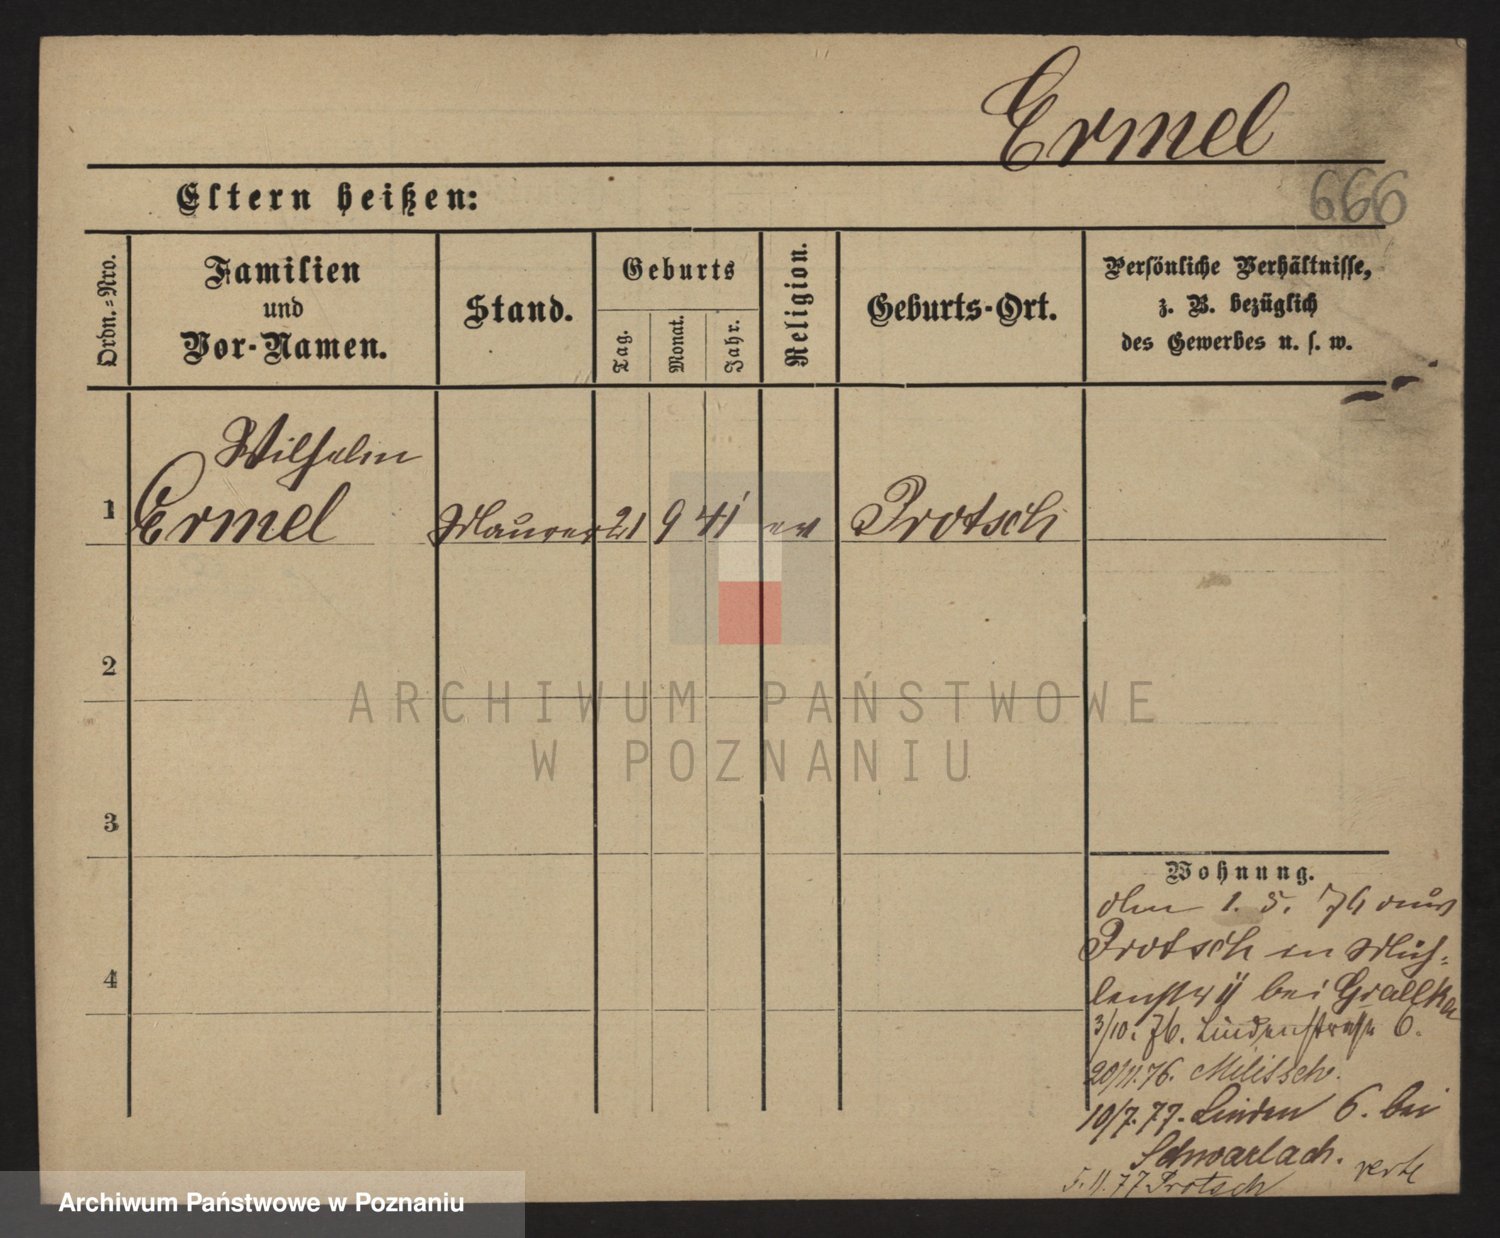 Ermel
Eltern heißen:
666
Ordn.-Nro.
Familien
und
Vor-Namen.
Stand.
Geburts
Tag.
Monat.
Jahr.
Religion.
Geburts-Ort.
Persönliche Verhältnisse,
z. B. bezüglich
des Gewerbes u. s. w.
Wilhelm
1 Ermel Maurer 21 9 41 ev Protsch
2
ARCHIWUM PAŃSTWOWE
W POZNANIU
3
Wohnung.
1. 5. 76 aus
Protsch in Müh-
4
bei Grallka
3/10. 76. Lindenstraße 6.
20/11. 76. Militsch.
10/7. 77. Linden 6. bei
Schwarlach.
5. 11. 77 Protsch verte
Archiwum Państwowe w Poznaniu